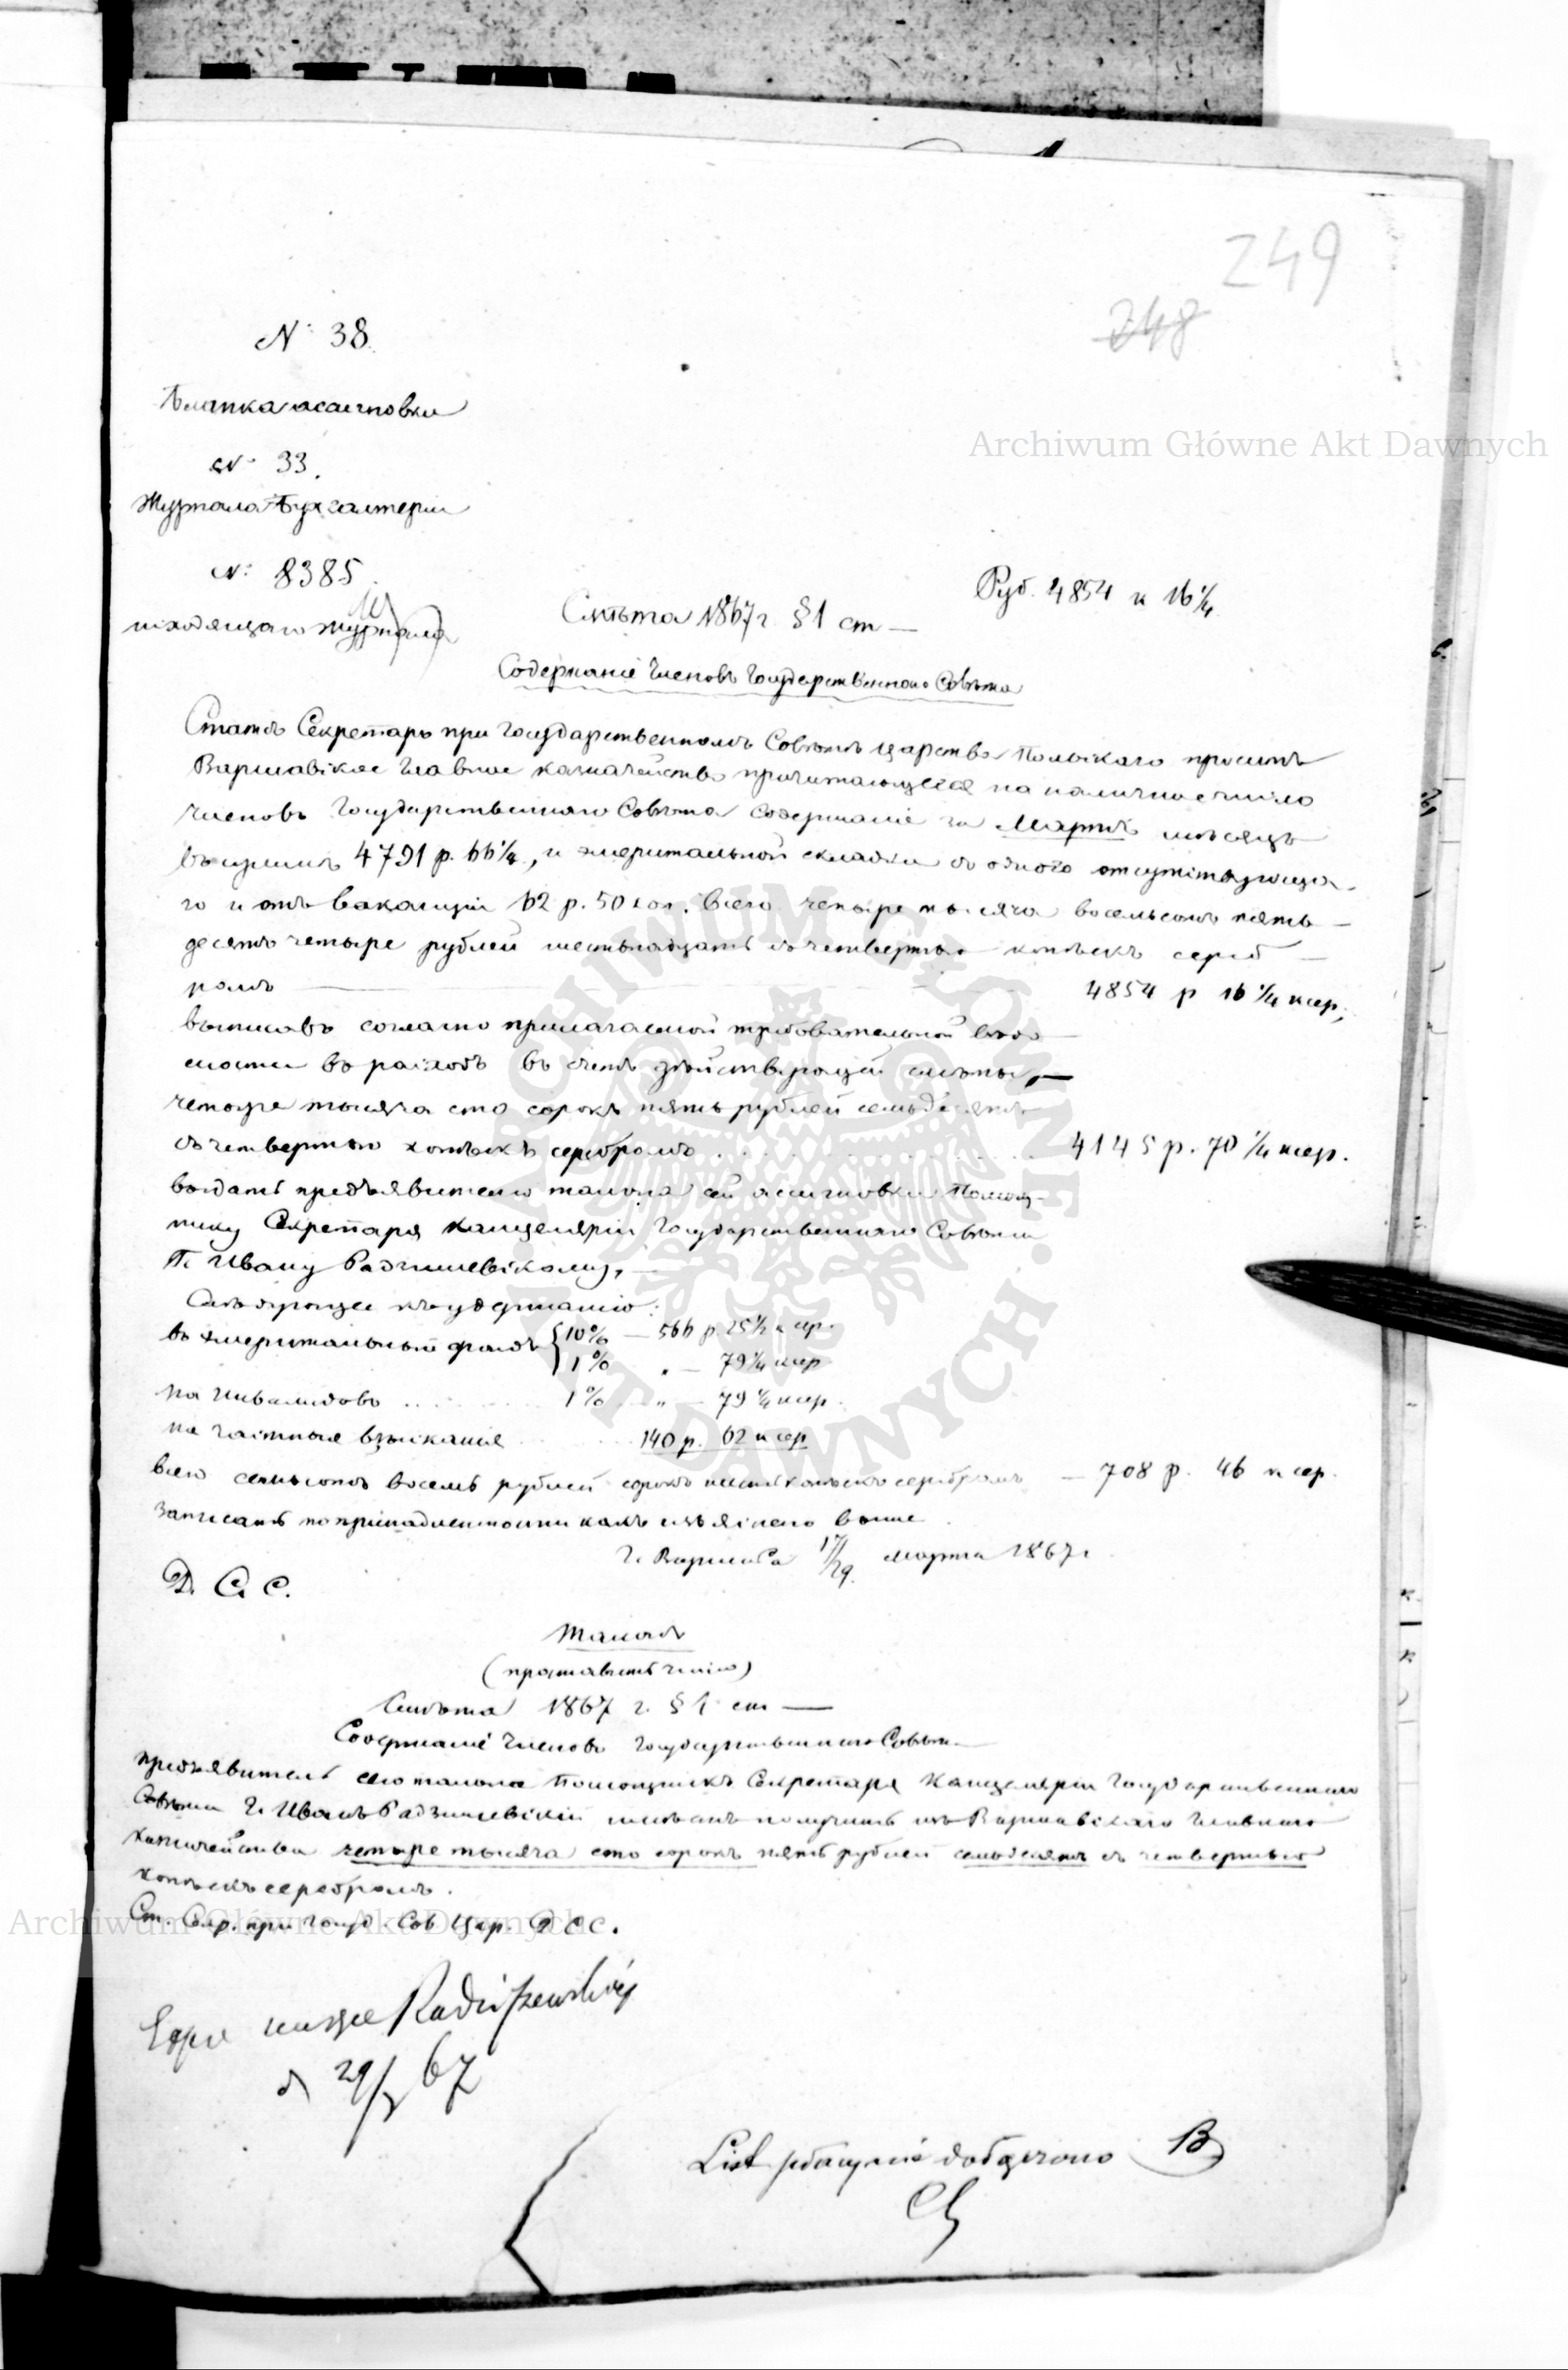 249
248
№ 38.
Бланка асигновки
№ 33.
Журнала Бухгалтеріи
№ 8385
исходящаго журнала
Archiwum Główne Akt Dawnych
Руб. 4854 к 16 1/4
Смѣта 1867 г. § 1 ст —
Содержаніе Членовъ Государственнаго Совѣта
Статсъ Секретарь при Государственномъ Совѣтѣ Царства Польскаго проситъ
Варшавское Главное казначейство причитающееся на наличное число
Членовъ Государственнаго Совѣта содержаніе за Мартъ мѣсяцъ
въ суммѣ 4791 р. 66 1/4, и эмеритальной складки съ одного отсутствующа-
го и отъ вакансіи 62 р. 50 коп. Всего четыре тысяча восемьсотъ пять-
десятъ четыре рублей шестьнадцать съ четвертью копѣекъ сереб-
ромъ 4854 р 16 1/4 к сер.,
выписавъ согласно прилагаемой требовательной вѣдо-
мости въ расходъ въ счетъ дѣйствующей смѣты, —
четыре тысяча сто сорокъ пять рублей семьдесятъ
съ четвертью копѣекъ серебромъ . . . . 4145 р. 70 1/4 к сер.
выдать предъявителю талона сей асигновки Помощ-
нику Секретаря Канцеляріи Государственнаго Совѣта
Г. Ивану Радзишевскому, —
Слѣдующее къ удержанію:
въ эмеритальный фондъ { 10% — 566 р 25 1/2 к сер.
1% „ — 79 1/4 к сер
на Инвалидовъ . . . 1% „ — 79 1/4 к сер.
на частныя взысканія 140 р. 62 к сер
всего семьсотъ восемь рублей сорокъ шесть копѣекъ серебромъ — 708 р. 46 к сер.
записать по принадлежности какъ изъяснено выше
Г. Варшава 17/29 Марта 1867 г.
Д. С. С.
Талонъ
Смѣта 1867 г. § 1 ст —
Содержаніе Членовъ Государственнаго Совѣта
Предъявитель сего талона Помощникъ Секретаря Канцеляріи Государственнаго
Совѣта Г. Иванъ Радзишевскій имѣетъ получить изъ Варшавскаго Главнаго
Казначейства четыре тысяча сто сорокъ пять рублей семьдесятъ съ четвертью
копѣекъ серебромъ.
Ст. Секр. при Госуд. Сов Цар. Д С С.
Archiwum Główne Akt Dawnych
Radziszewski
d 29/3 67
List płacy nie dołączono B
ARCHIWUM GŁÓWNE AKT DAWNYCH